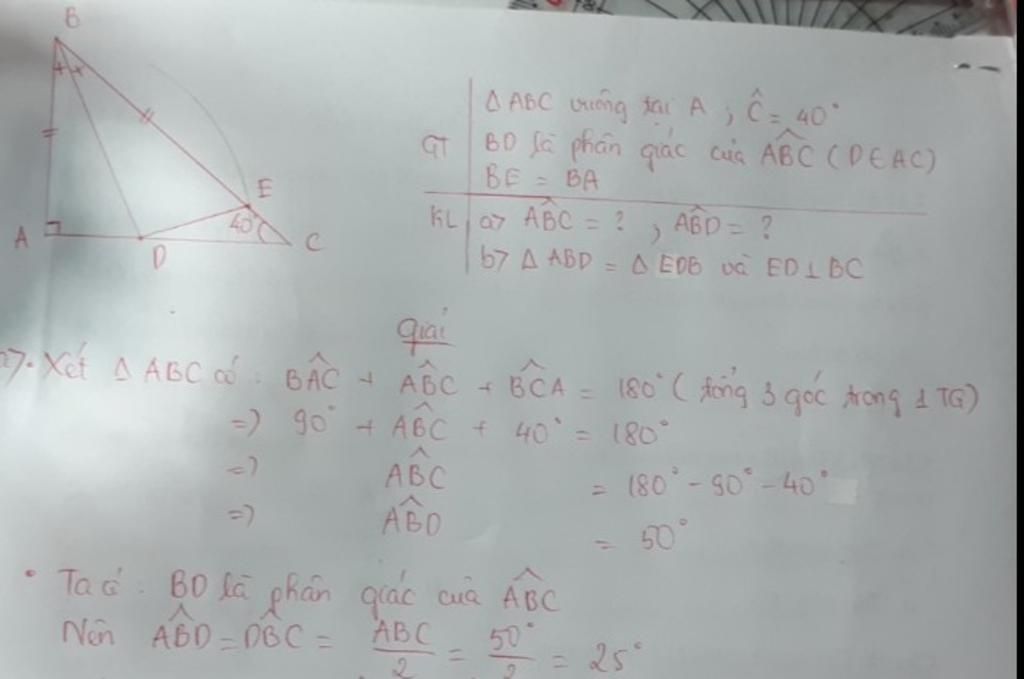 B
A
D
E
C
40°
GT
Δ ABC vuông tại A ; Ĉ = 40°
BD là phân giác của ABC̑ (D ∈ AC)
BE = BA
KL
a> ABC̑ = ? , ABD̑ = ?
b> Δ ABD = Δ EDB và ED ⊥ BC
Giải
a>. Xét Δ ABC có : BAC̑ + ABC̑ + BCȂ = 180° ( tổng 3 góc trong 1 TG)
=> 90° + ABC̑ + 40° = 180°
=> ABC̑ = 180° - 90° - 40°
=> ABD̑ = 50°
• Ta có : BD là phân giác của ABC̑
Nên ABD̑ = DBC̑ = ABC/2 = 50°/2 = 25°